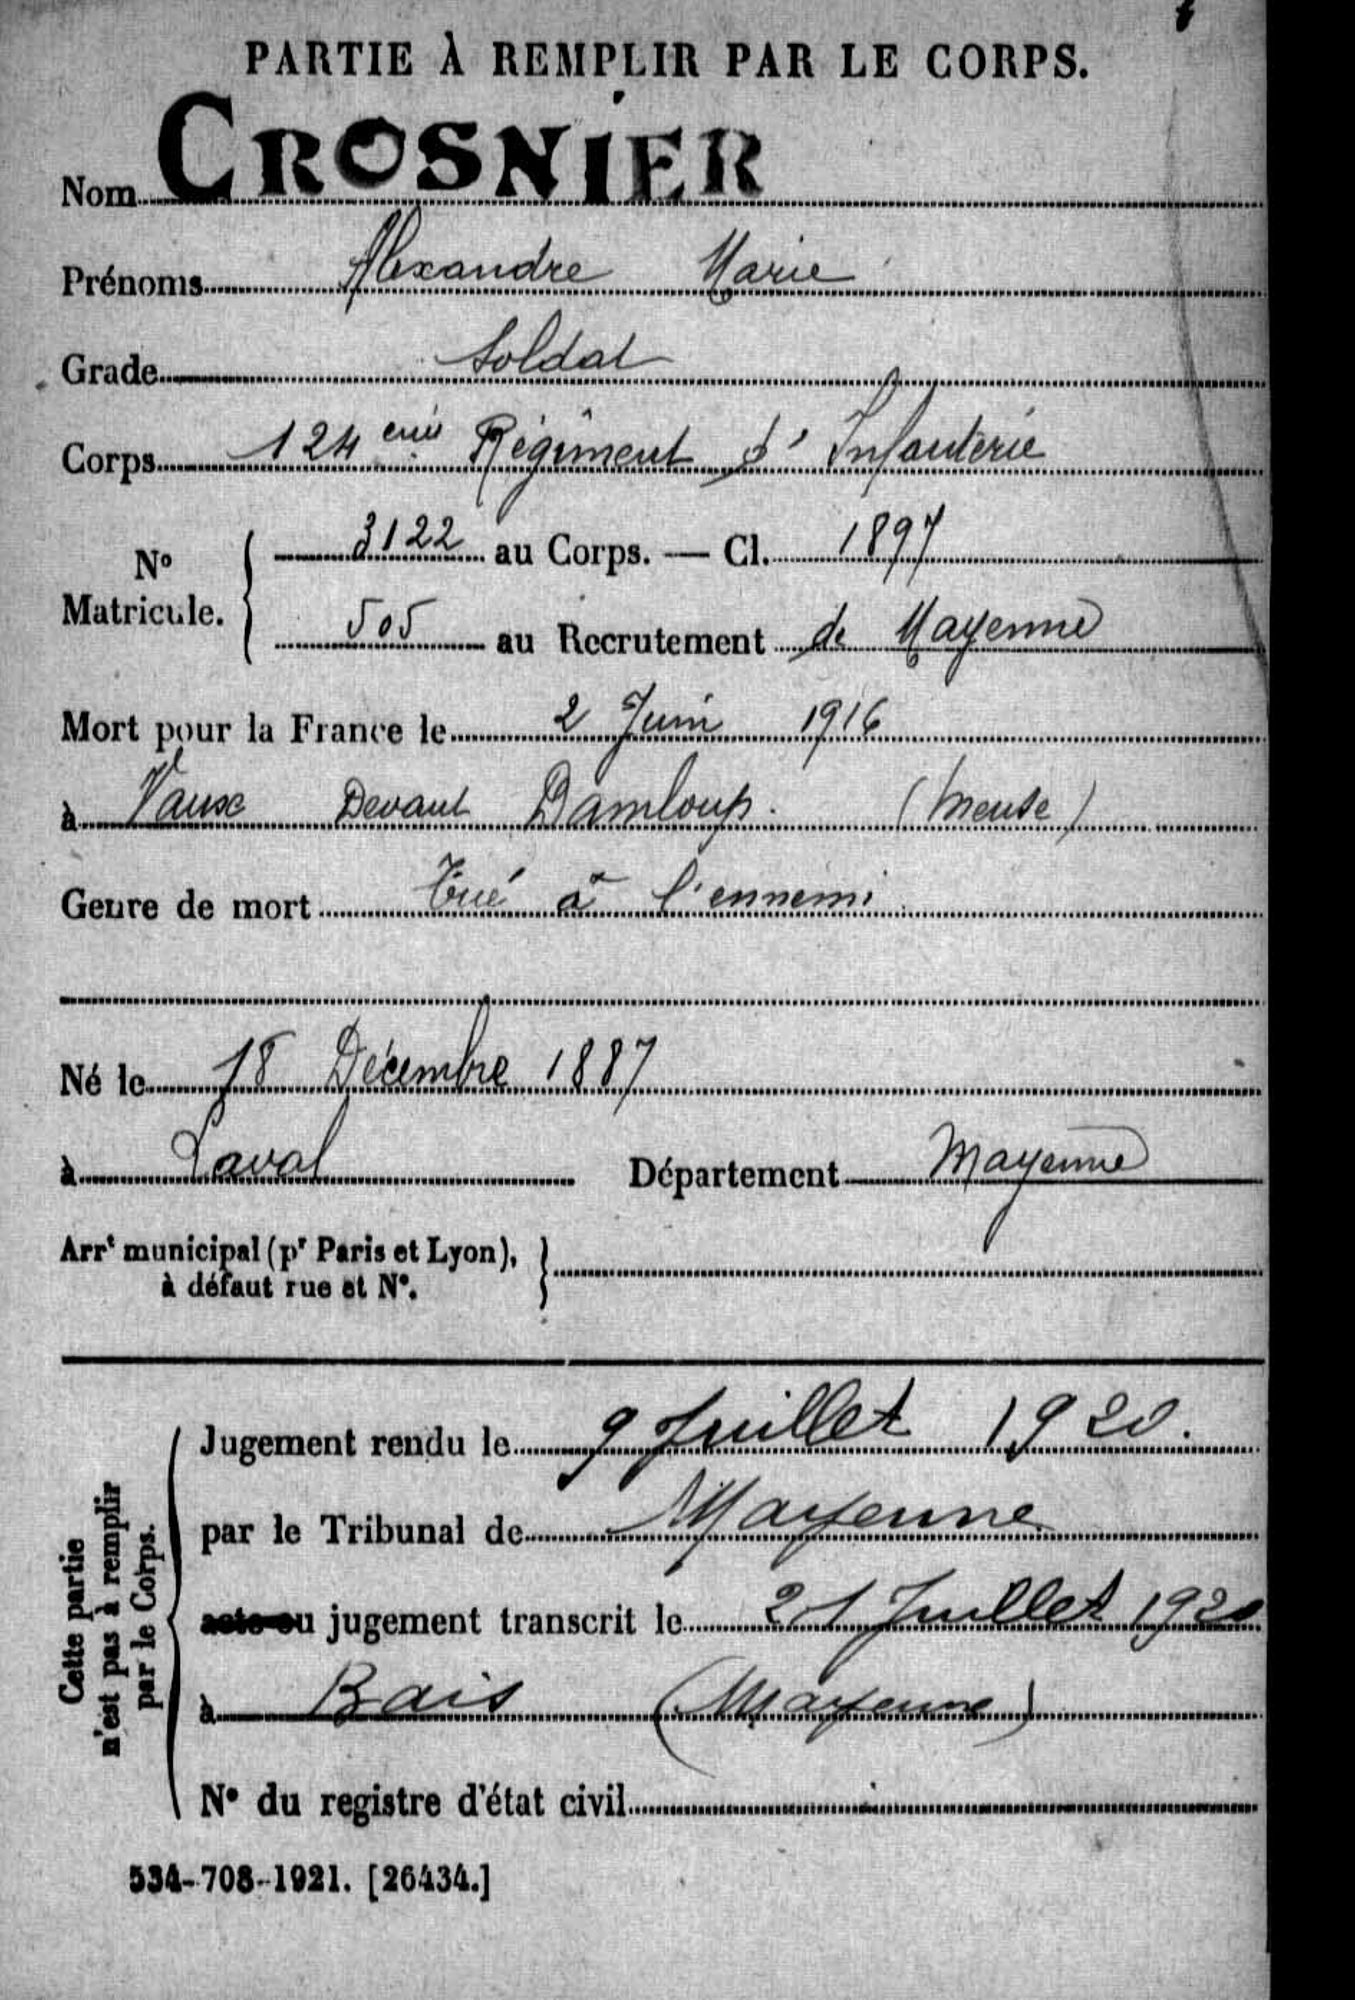 PARTIE À REMPLIR PAR LE CORPS.
Nom CROSNIER
Prénoms Alexandre Marie
Grade Soldat
Corps 124 eme Régiment d'Infanterie
N° Matricule. 3122 au Corps. — Cl. 1897
505 au Recrutement de Mayenne
Mort pour la France le 2 Juin 1916
à Vaux Devant Damloup. (Meuse)
Genre de mort Tué à l'ennemi
Né le 18 Décembre 1887
à Laval Département Mayenne
Arrt municipal (pr Paris et Lyon),
à défaut rue et N°.
Cette partie
n'est pas à remplir
par le Corps.
Jugement rendu le 9 Juillet 1920.
par le Tribunal de Mayenne
acte ou jugement transcrit le 21 Juillet 1920
à Bais (Mayenne)
N° du registre d'état civil
534-708-1921. [26434.]